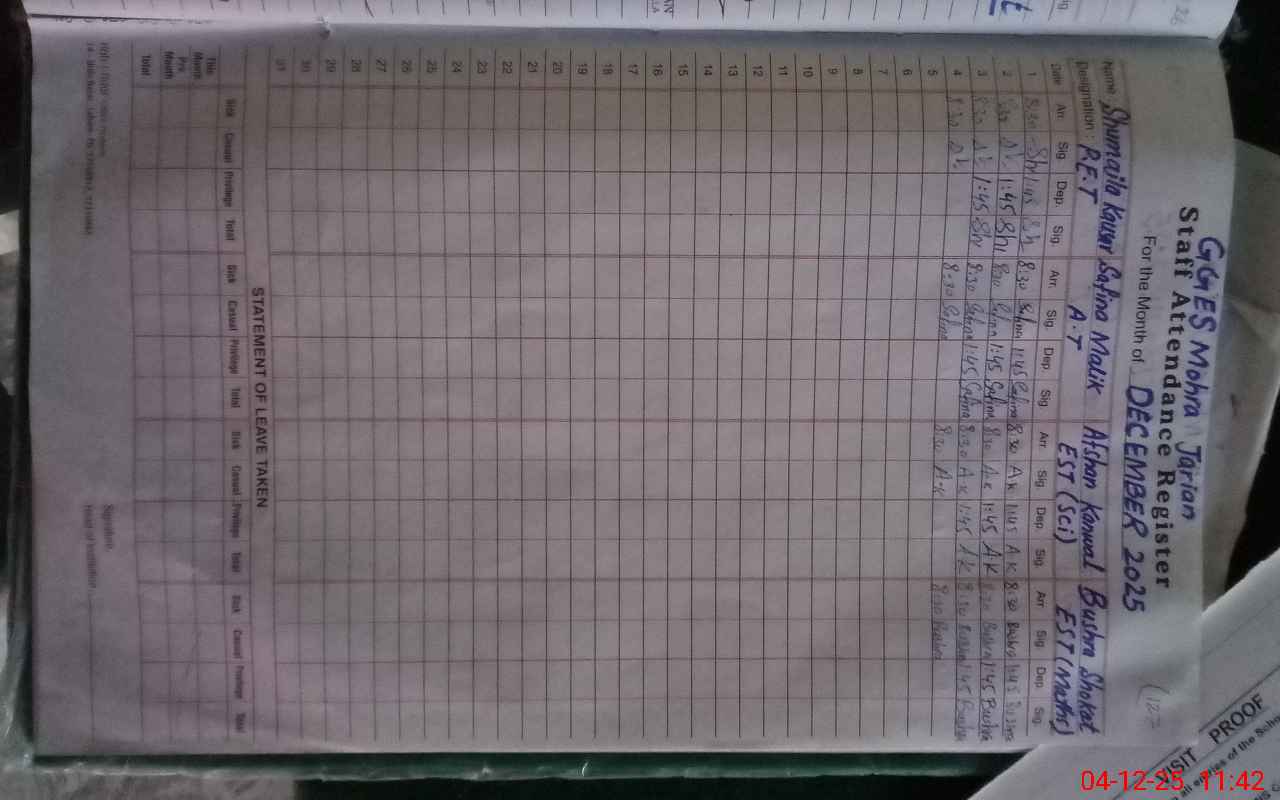 GGES Mohra Jarian
Staff Attendance Register
For the Month of DECEMBER 2025
Name: Shumaila Kausar Safina Malik Afshan Kanwal Bushra Shokat
Designation: P.E.T A.T EST (Sci) EST (Maths)
Date Arr. Sig. Dep. Sig. Arr. Sig. Dep. Sig. Arr. Sig. Dep. Sig. Arr. Sig. Dep. Sig.
1 8:30 Shi 1:45 Sh 8:30 Safina 1:45 Safina 8:30 A.K 1:45 A.K 8:30 Bushra 1:45 Bushra
2 8:30 1:45 Shi 8:30 Safina 1:45 Safina 8:30 A.K 1:45 A.K 8:30 Bushra 1:45 Bushra
3 8:30 1:45 Shi 8:30 Safina 1:45 Safina 8:30 A.K 1:45 A.K 8:30 Bushra 1:45 Bushra
4 8:30 8:30 Safina 8:30 A.K 8:30 Bushra
5
6
7
8
9
10
11
12
13
14
15
16
17
18
19
20
21
22
23
24
25
26
27
28
29
30
31
STATEMENT OF LEAVE TAKEN
Sick Casual Privilege Total Sick Casual Privilege Total Sick Casual Privilege Total Sick Casual Privilege Total
This Month
Pre. Month
Total
Signature
Head of Institution
VISIT PROOF
all entries of the
04-12-25 11:42